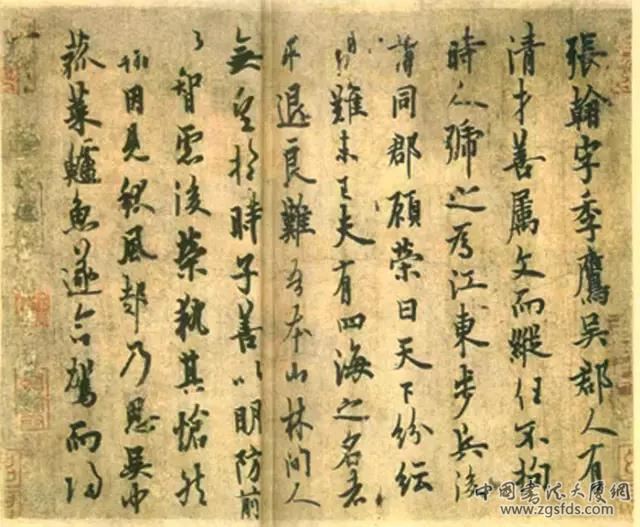 張翰字季鷹吳郡人有
清才善属文而縱任不拘
時人號之為江東步兵後
謂同郡顧榮曰天下紛紜
難未已夫有四海之名者
求退良難吾本山林間人
無望於時子善以明防前
以智慮後榮執其愴然
翰因見秋風起乃思吳中
菰菜鱸魚遂命駕而歸
中国书法大厦网
www.zgsfds.com